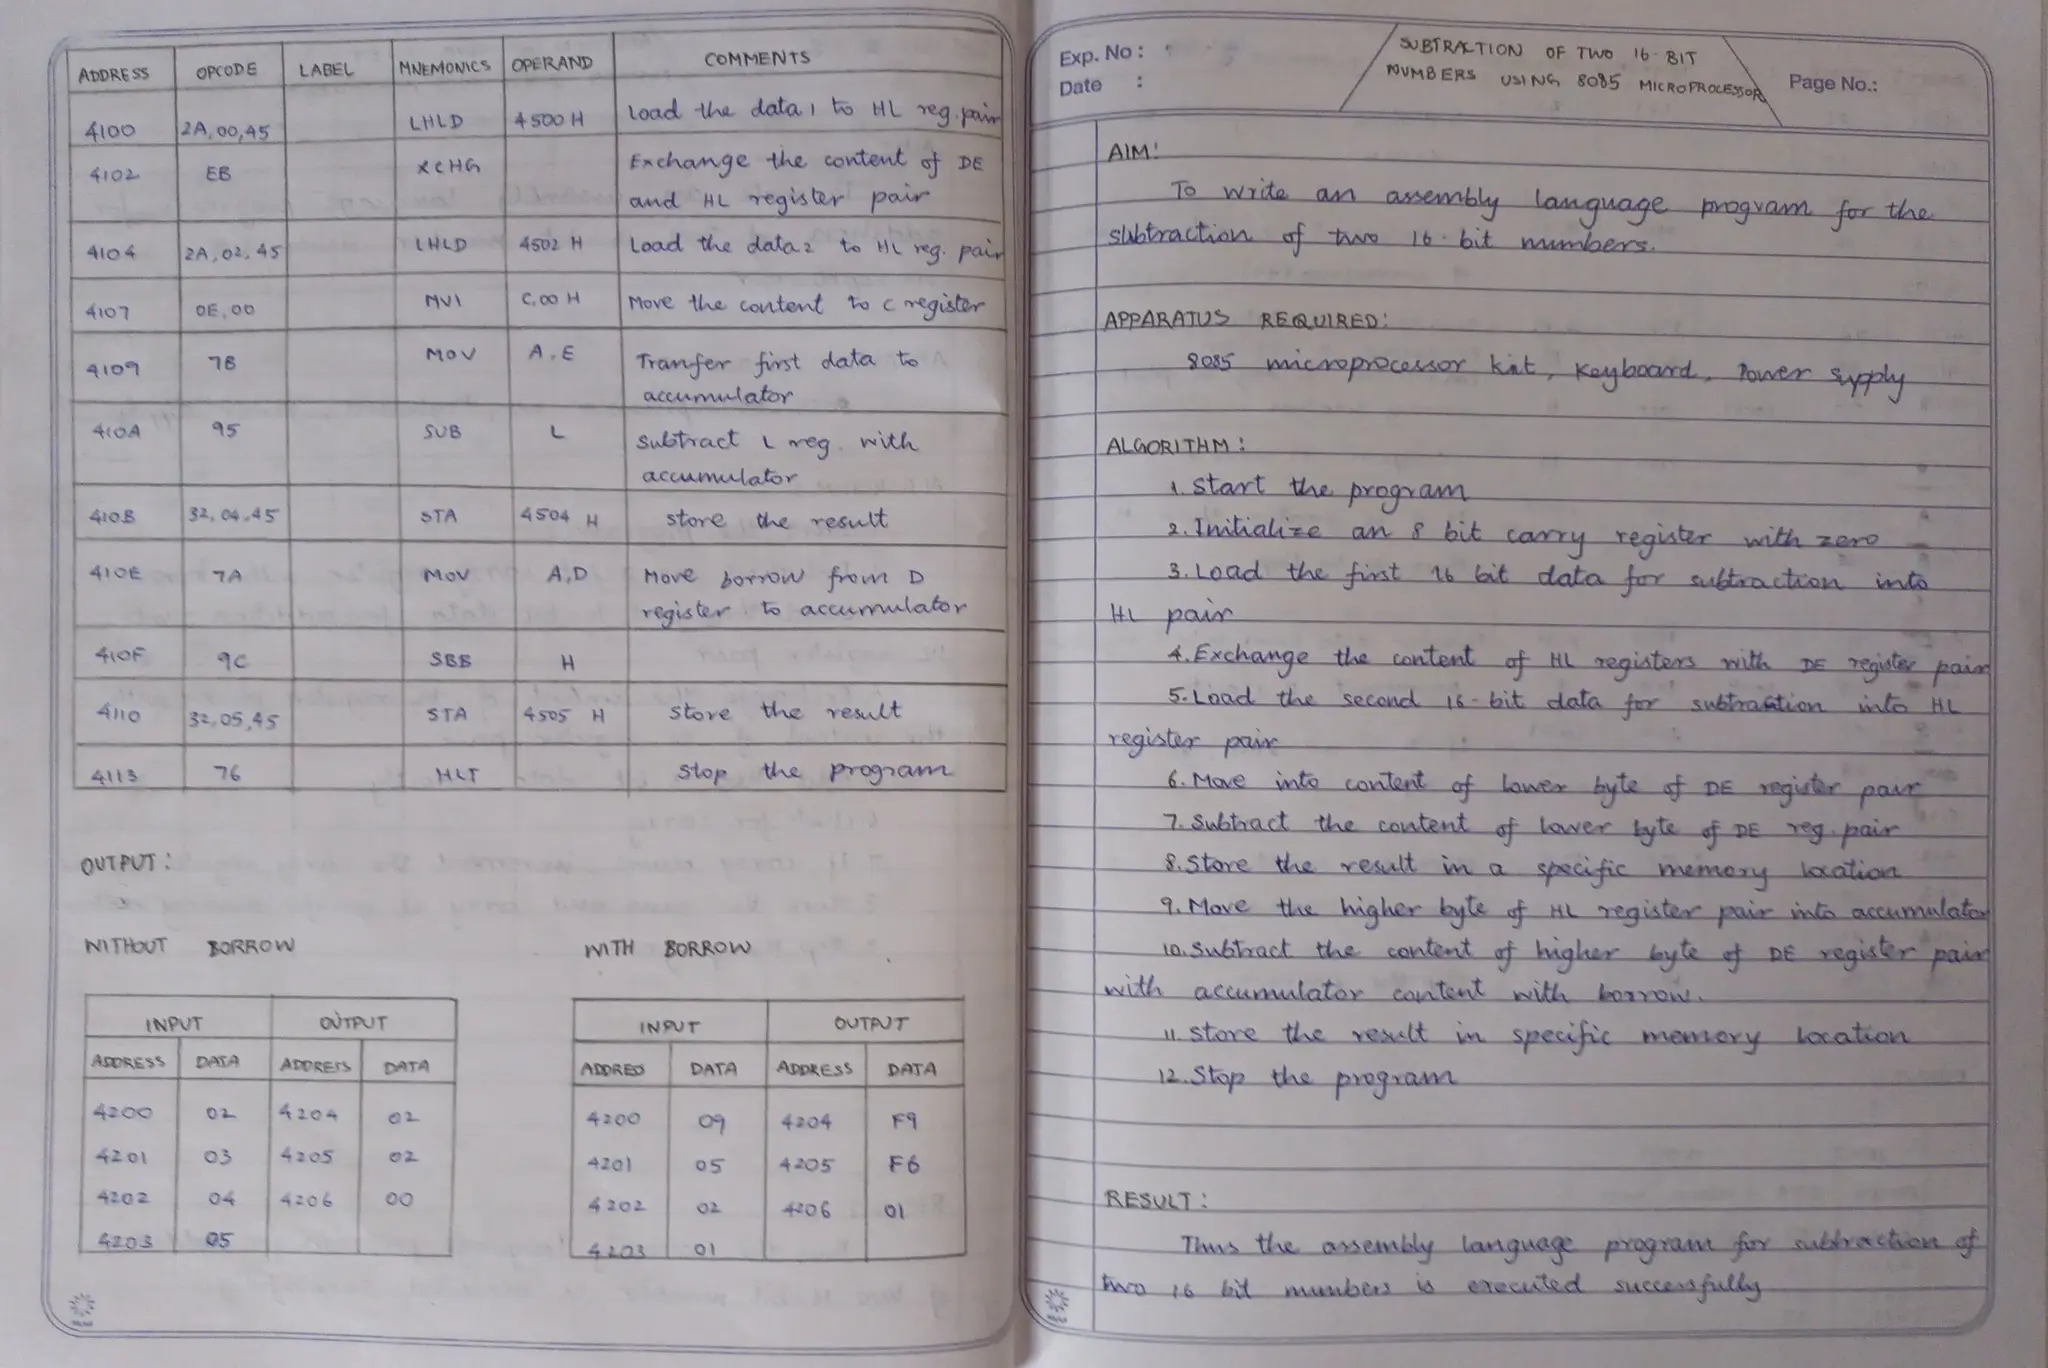 ADDRESS OPCODE LABEL MNEMONICS OPERAND COMMENTS
4100 2A,00,45 LHLD 4500 H Load the data 1 to HL reg.pair
4102 EB XCHG Exchange the content of DE
and HL register pair
4104 2A,02,45 LHLD 4502 H Load the data 2 to HL reg. pair
4107 0E,00 MVI C,00 H Move the content to C register
4109 7B MOV A,E Tranfer first data to
accumulator
410A 95 SUB L subtract L reg. with
accumulator
410B 32,04,45 STA 4504 H store the result
410E 7A MOV A,D Move borrow from D
register to accumulator
410F 9C SBB H
4110 32,05,45 STA 4505 H store the result
4113 76 HLT stop the program
OUTPUT:
WITHOUT BORROW
INPUT OUTPUT
ADDRESS DATA ADDRESS DATA
4200 02 4204 02
4201 03 4205 02
4202 04 4206 00
4203 05
WITH BORROW
INPUT OUTPUT
ADDRES DATA ADDRESS DATA
4200 09 4204 F9
4201 05 4205 F6
4202 02 4206 01
4203 01
Exp. No :
Date :
SUBTRACTION OF TWO 16-BIT
NUMBERS USING 8085 MICROPROCESSOR
Page No.:
AIM:
To write an assembly language program for the
subtraction of two 16-bit numbers.
APPARATUS REQUIRED:
8085 microprocessor kit, Keyboard, Power supply
ALGORITHM:
1. Start the program
2. Initialize an 8 bit carry register with zero
3. Load the first 16 bit data for subtraction into
HL pair
4. Exchange the content of HL registers with DE register pair
5. Load the second 16-bit data for subtraction into HL
register pair
6. Move into content of lower byte of DE register pair
7. Subtract the content of lower byte of DE reg. pair
8. Store the result in a specific memory location
9. Move the higher byte of HL register pair into accumulator
10. Subtract the content of higher byte of DE register pair
with accumulator content with borrow.
11. Store the result in specific memory location
12. Stop the program
RESULT:
Thus the assembly language program for subtraction of
two 16 bit numbers is executed successfully